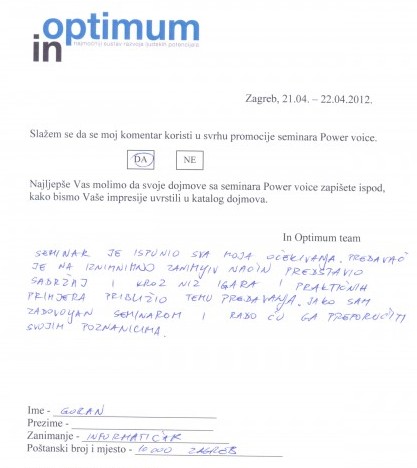 in optimum
najmoćniji sustav razvoja ljudskih potencijala
Zagreb, 21.04. – 22.04.2012.
Slažem se da se moj komentar koristi u svrhu promocije seminara Power voice.
DA NE
Najljepše Vas molimo da svoje dojmove sa seminara Power voice zapišete ispod,
kako bismo Vaše impresije uvrstili u katalog dojmova.
In Optimum team
SEMINAR JE ISPUNIO SVA MOJA OČEKIVANJA. PREDAVAČ
JE NA IZNIMNIMNO ZANIMLJIV NAČIN PREDSTAVIO
SADRŽAJ I KROZ NIZ IGARA I PRAKTIČNIH
PRIMJERA PRIBLIŽIO TEMU PREDAVANJA. JAKO SAM
ZADOVOLJAN SEMINAROM I RADO ĆU GA PREPORUČITI
SVOJIM POZNANICIMA.
Ime - GORAN
Prezime -
Zanimanje - INFORMATIČAR
Poštanski broj i mjesto - 10000 ZAGREB